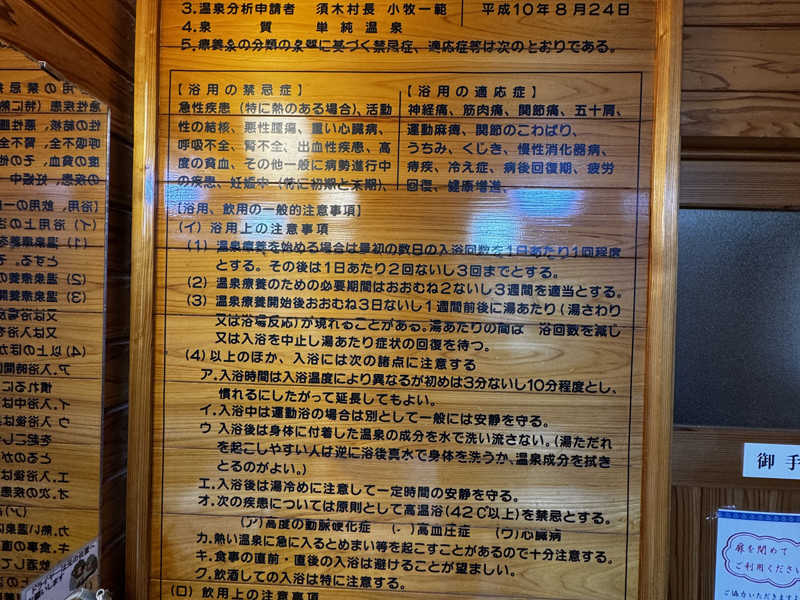 3.温泉分析申請者 須木村長 小牧一範
平成10年8月24日
4.泉質 単純温泉
5.療養泉の分類の泉質に基づく禁忌症、適応症等は次のとおりである。
【浴用の禁忌症】
急性疾患(特に熱のある場合)、活動
性の結核、悪性腫瘍、重い心臓病、
呼吸不全、腎不全、出血性疾患、高
度の貧血、その他一般に病勢進行中
の疾患、妊娠中(特に初期と末期)、
【浴用の適応症】
神経痛、筋肉痛、関節痛、五十肩、
運動麻痺、関節のこわばり、
うちみ、くじき、慢性消化器病、
痔疾、冷え症、病後回復期、疲労
回復、健康増進、
【浴用、飲用の一般的注意事項】
(イ)浴用上の注意事項
(1)温泉療養を始める場合は最初の数日の入浴回数を1日あたり1回程度
とする。その後は1日あたり2回ないし3回までとする。
(2)温泉療養のための必要期間はおおむね2ないし3週間を適当とする。
(3)温泉療養開始後おおむね3日ないし1週間前後に湯あたり(湯さわり
又は浴場反応)が現れることがある。湯あたりの間は 浴回数を減じ
又は入浴を中止し湯あたり症状の回復を待つ。
(4)以上のほか、入浴には次の諸点に注意する
ア.入浴時間は入浴温度により異なるが初めは3分ないし10分程度とし、
慣れるにしたがって延長してもよい。
イ.入浴中は運動浴の場合は別として一般には安静を守る。
ウ 入浴後は身体に付着した温泉の成分を水で洗い流さない。(湯ただれ
を起こしやすい人は逆に浴後真水で身体を洗うか、温泉成分を拭き
とるのがよい。)
エ.入浴後は湯冷めに注意して一定時間の安静を守る。
オ.次の疾患については原則として高温浴(42℃以上)を禁忌とする。
(ア)高度の動脈硬化症 ( )高血圧症 (ウ)心臓病
カ.熱い温泉に急に入るとめまい等を起こすことがあるので十分注意する。
キ.食事の直前・直後の入浴は避けることが望ましい。
ク.飲酒しての入浴は特に注意する。
(ロ)飲用上の注意事項
御手
扉を閉めて
ご利用ください
ご協力いただきますよ